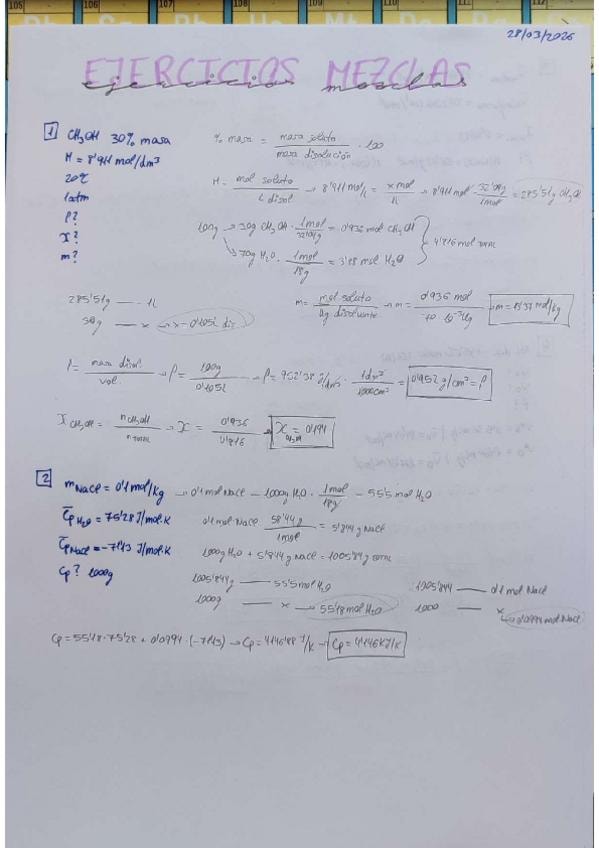 105 106 107 108 109 110 111 112
28/03/2026
EJERCICIOS MEZCLAS
ejercicios mezclas
1 CH3OH 30% masa
M = 8'911 mol/dm³
20ºC
1atm
ρ?
χ?
m?
% masa = masa soluto / masa disolución · 100
M = mol soluto / L disol → 8'911 mol/L = x mol / 1L → 8'911 mol · 32'04g / 1mol = 285'51g CH3OH
100g → 30g CH3OH · 1mol / 32'04g = 0'936 mol CH3OH
↘ 70g H2O · 1mol / 18g = 3'88 mol H2O
4'816 mol totales
285'51g — 1L
30g — x → x = 0'105L dis
m = mol soluto / kg disolvente → m = 0'936 mol / 70·10⁻³kg → m = 13'37 mol/kg
ρ = masa disol. / vol. → ρ = 100g / 0'105L → ρ = 952'38 g/dm³ · 1dm³ / 1000cm³ = 0'952 g/cm³ = ρ
χ CH3OH = n CH3OH / n TOTAL → χ = 0'936 / 4'816 → χ CH3OH = 0'194
2 m NaCl = 0'1 mol/kg → 0'1 mol NaCl – 1000g H2O · 1mol / 18g – 55'5 mol H2O
C̄p H2O = 75'28 J/mol·K
0'1 mol NaCl · 58'44g / 1mol = 5'844g NaCl
C̄p NaCl = -7'43 J/mol·K
1000g H2O + 5'844g NaCl = 1005'84g
Cp? 1000g
1005'844g — 55'5 mol H2O
1000g — x → 55'18 mol H2O
1005'844 — 0'1 mol NaCl
1000 — x → 0'0994 mol NaCl
Cp = 55'18·75'28 + 0'0994·(-7'43) → Cp = 4146'88 J/K → Cp = 4'146 KJ/K